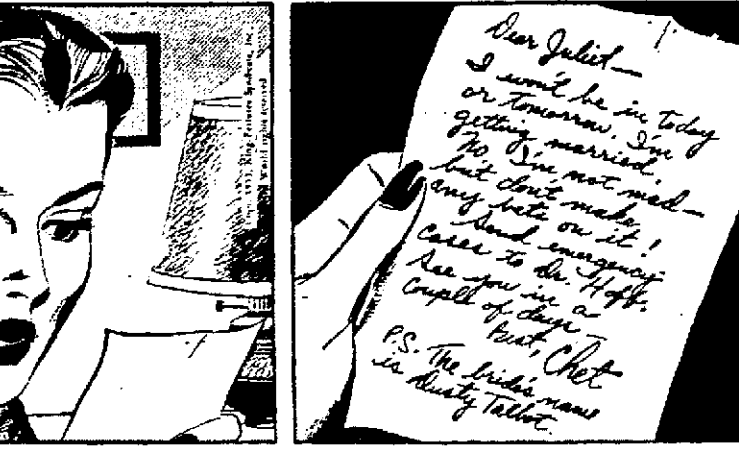 1953, King Features Syndicate, Inc.,
World rights reserved
Dear Juliet—
I won't be in today
or tomorrow. I'm
getting married.
No I'm not mad—
but don't make
any bets on it!
Send emergency
cases to Dr. Hoff.
See you in a
couple of days—
Chet
P.S. The bride's name
is Dusty Talbot.